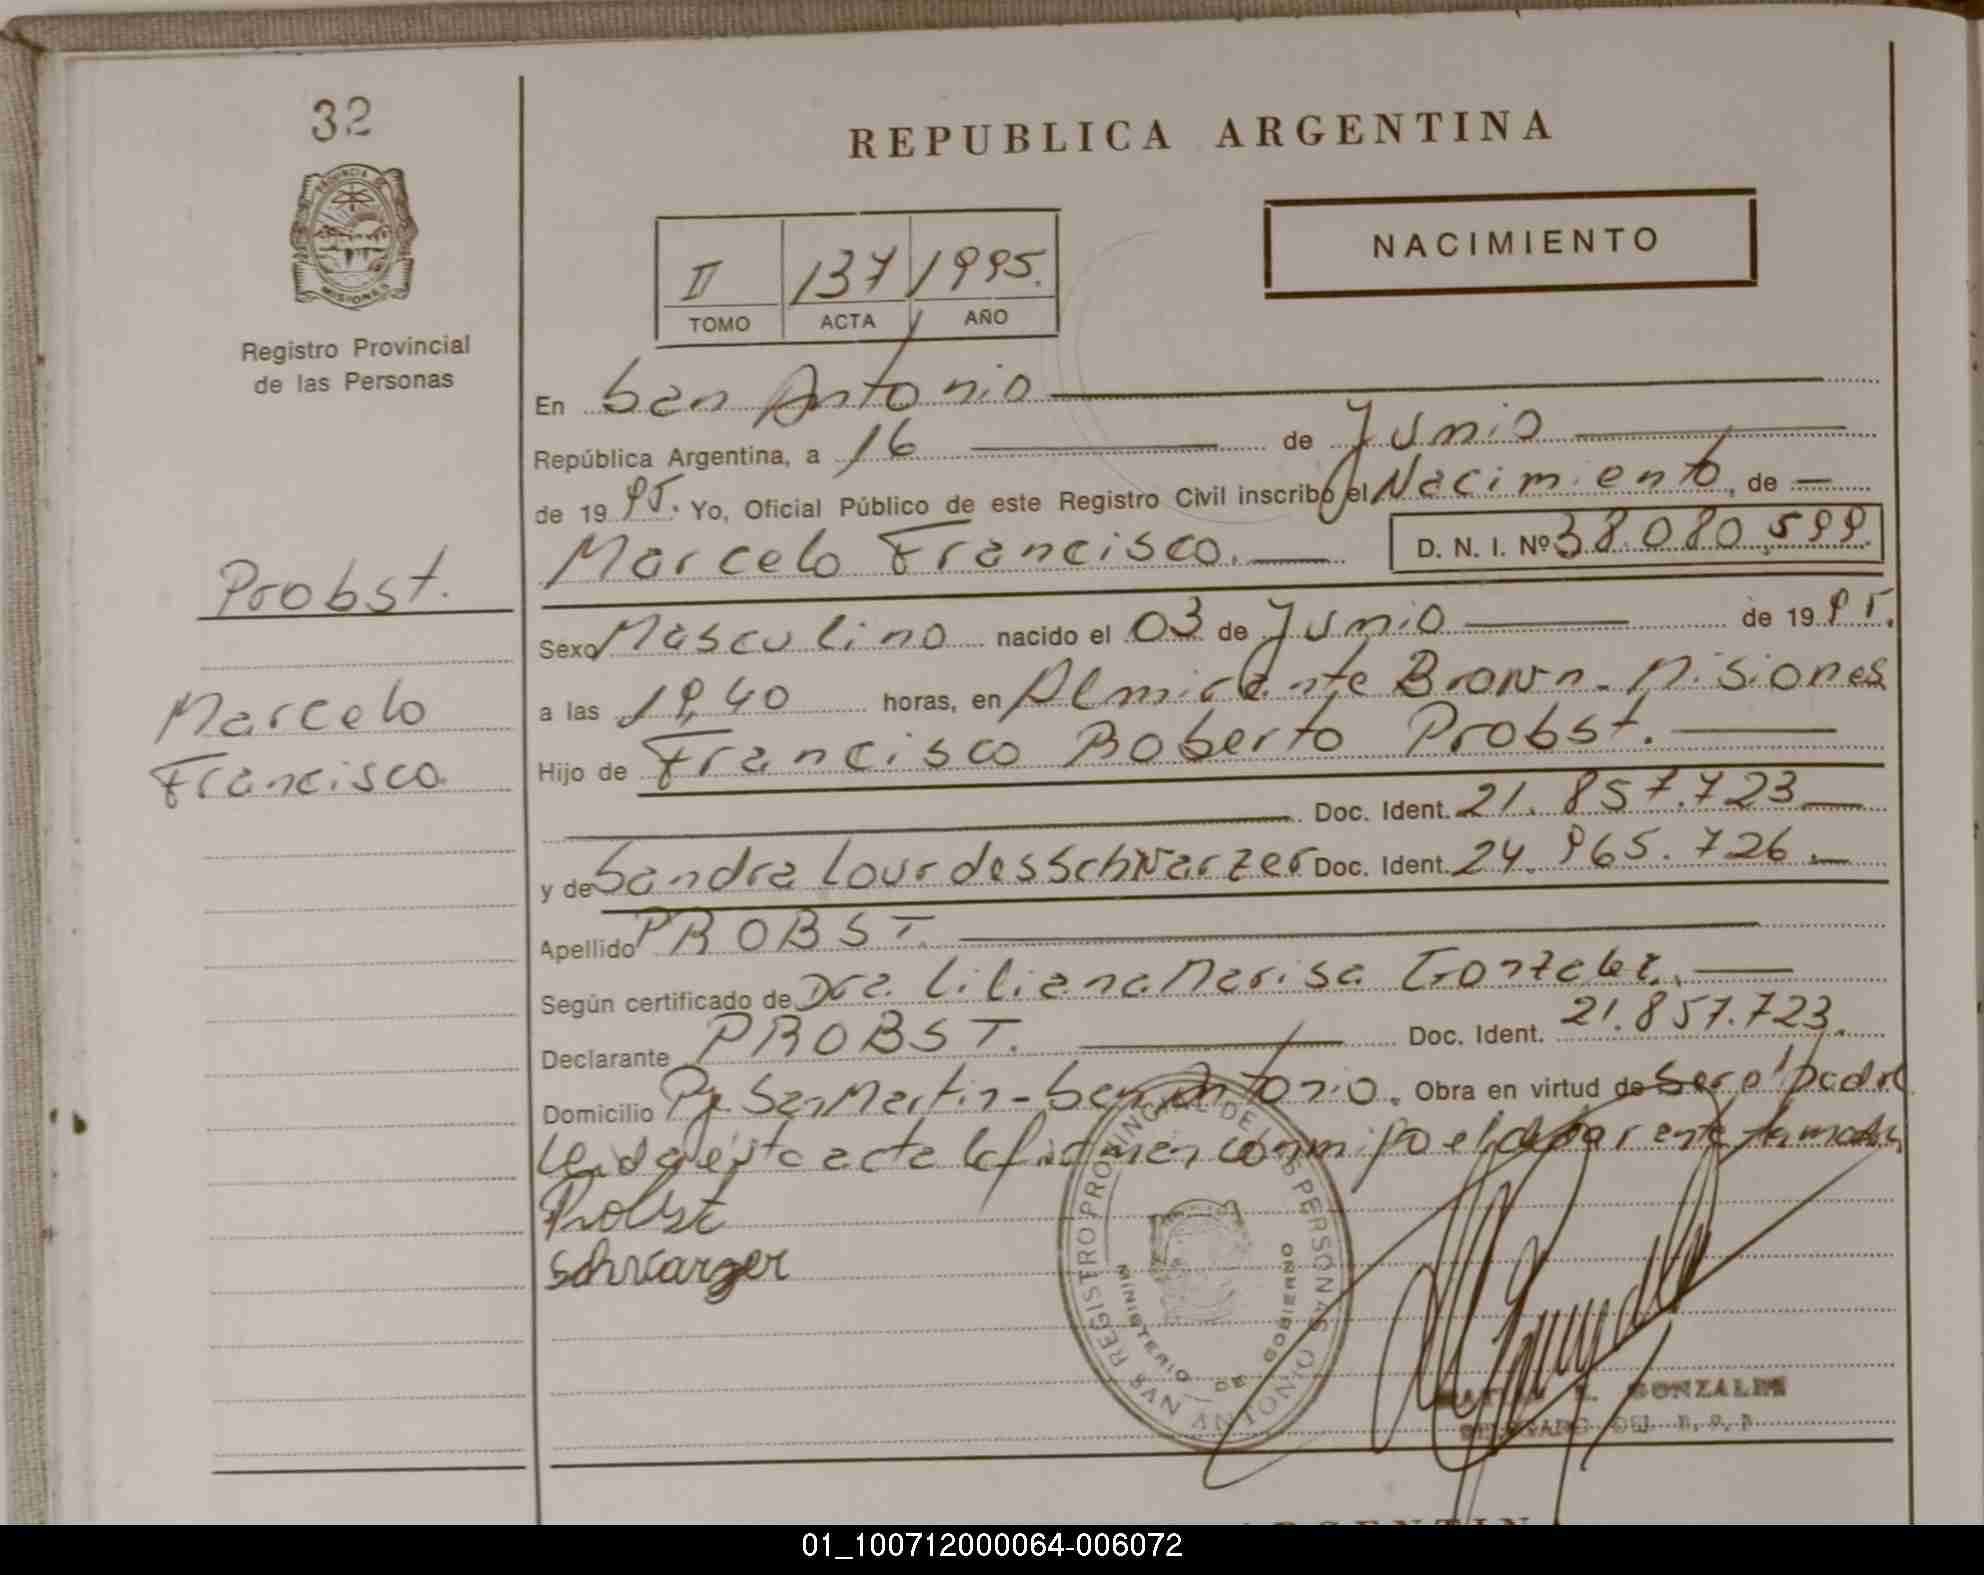 32
PROVINCIA DE
MISIONES
Registro Provincial
de las Personas
Probst.
Marcelo
Francisco
REPUBLICA ARGENTINA
NACIMIENTO
II 137 1995.
TOMO ACTA AÑO
En San Antonio
República Argentina, a 16 de Junio
de 1995. Yo, Oficial Público de este Registro Civil inscribo el Nacimiento, de
Marcelo Francisco. D. N. I. Nº 38.080.599.
Sexo Masculino nacido el 03 de Junio de 1995.
a las 19,40 horas, en Almirante Brown - Misiones
Hijo de Francisco Roberto Probst.
Doc. Ident. 21.857.723
y de Sandra Lourdes Schwarzer Doc. Ident. 24.965.726.
Apellido PROBST.
Según certificado de Dra. Liliana Marisa Gonzalez.
Declarante PROBST. Doc. Ident. 21.857.723.
Domicilio Pje. San Martin - San Antonio. Obra en virtud de Ser el padre
Leida esta acta la firman conmigo el declarante la madre
Probst
Schwarzer
REGISTRO PROVINCIAL DE LAS PERSONAS
MINISTERIO DE GOBIERNO
SAN ANTONIO
GONZALEZ
01_100712000064-006072